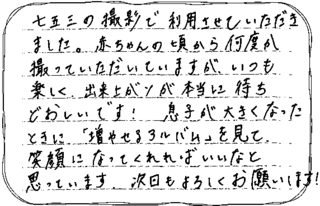 七五三の撮影で利用させていただき
ました。赤ちゃんの頃から何度か
撮っていただいていますが、いつも
楽しく、出来上がりが本当に待ち
どおしいです！ 息子が大きくなった
ときに「増やせるアルバム」を見て、
笑顔になってくれればいいなと
思っています。次回もよろしくお願いします!